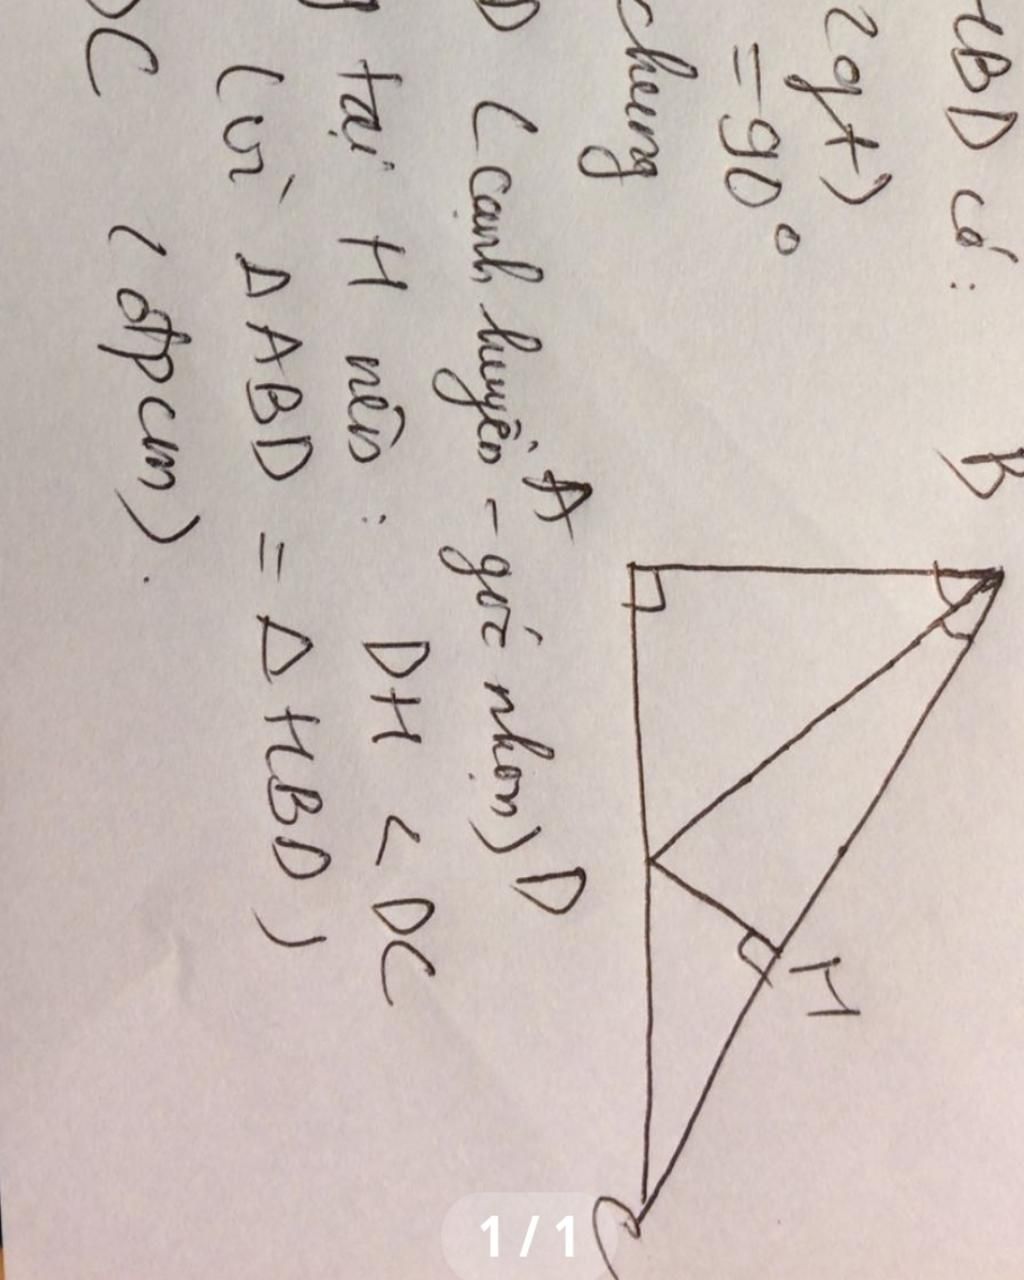 HBD có:
(gt)
= 90°
chung
D (cạnh huyền - góc nhọn)
tại H nên: DH < DC
(vì Δ ABD = Δ HBD)
DC (đpcm).
B
A
D
H
C
1 / 1